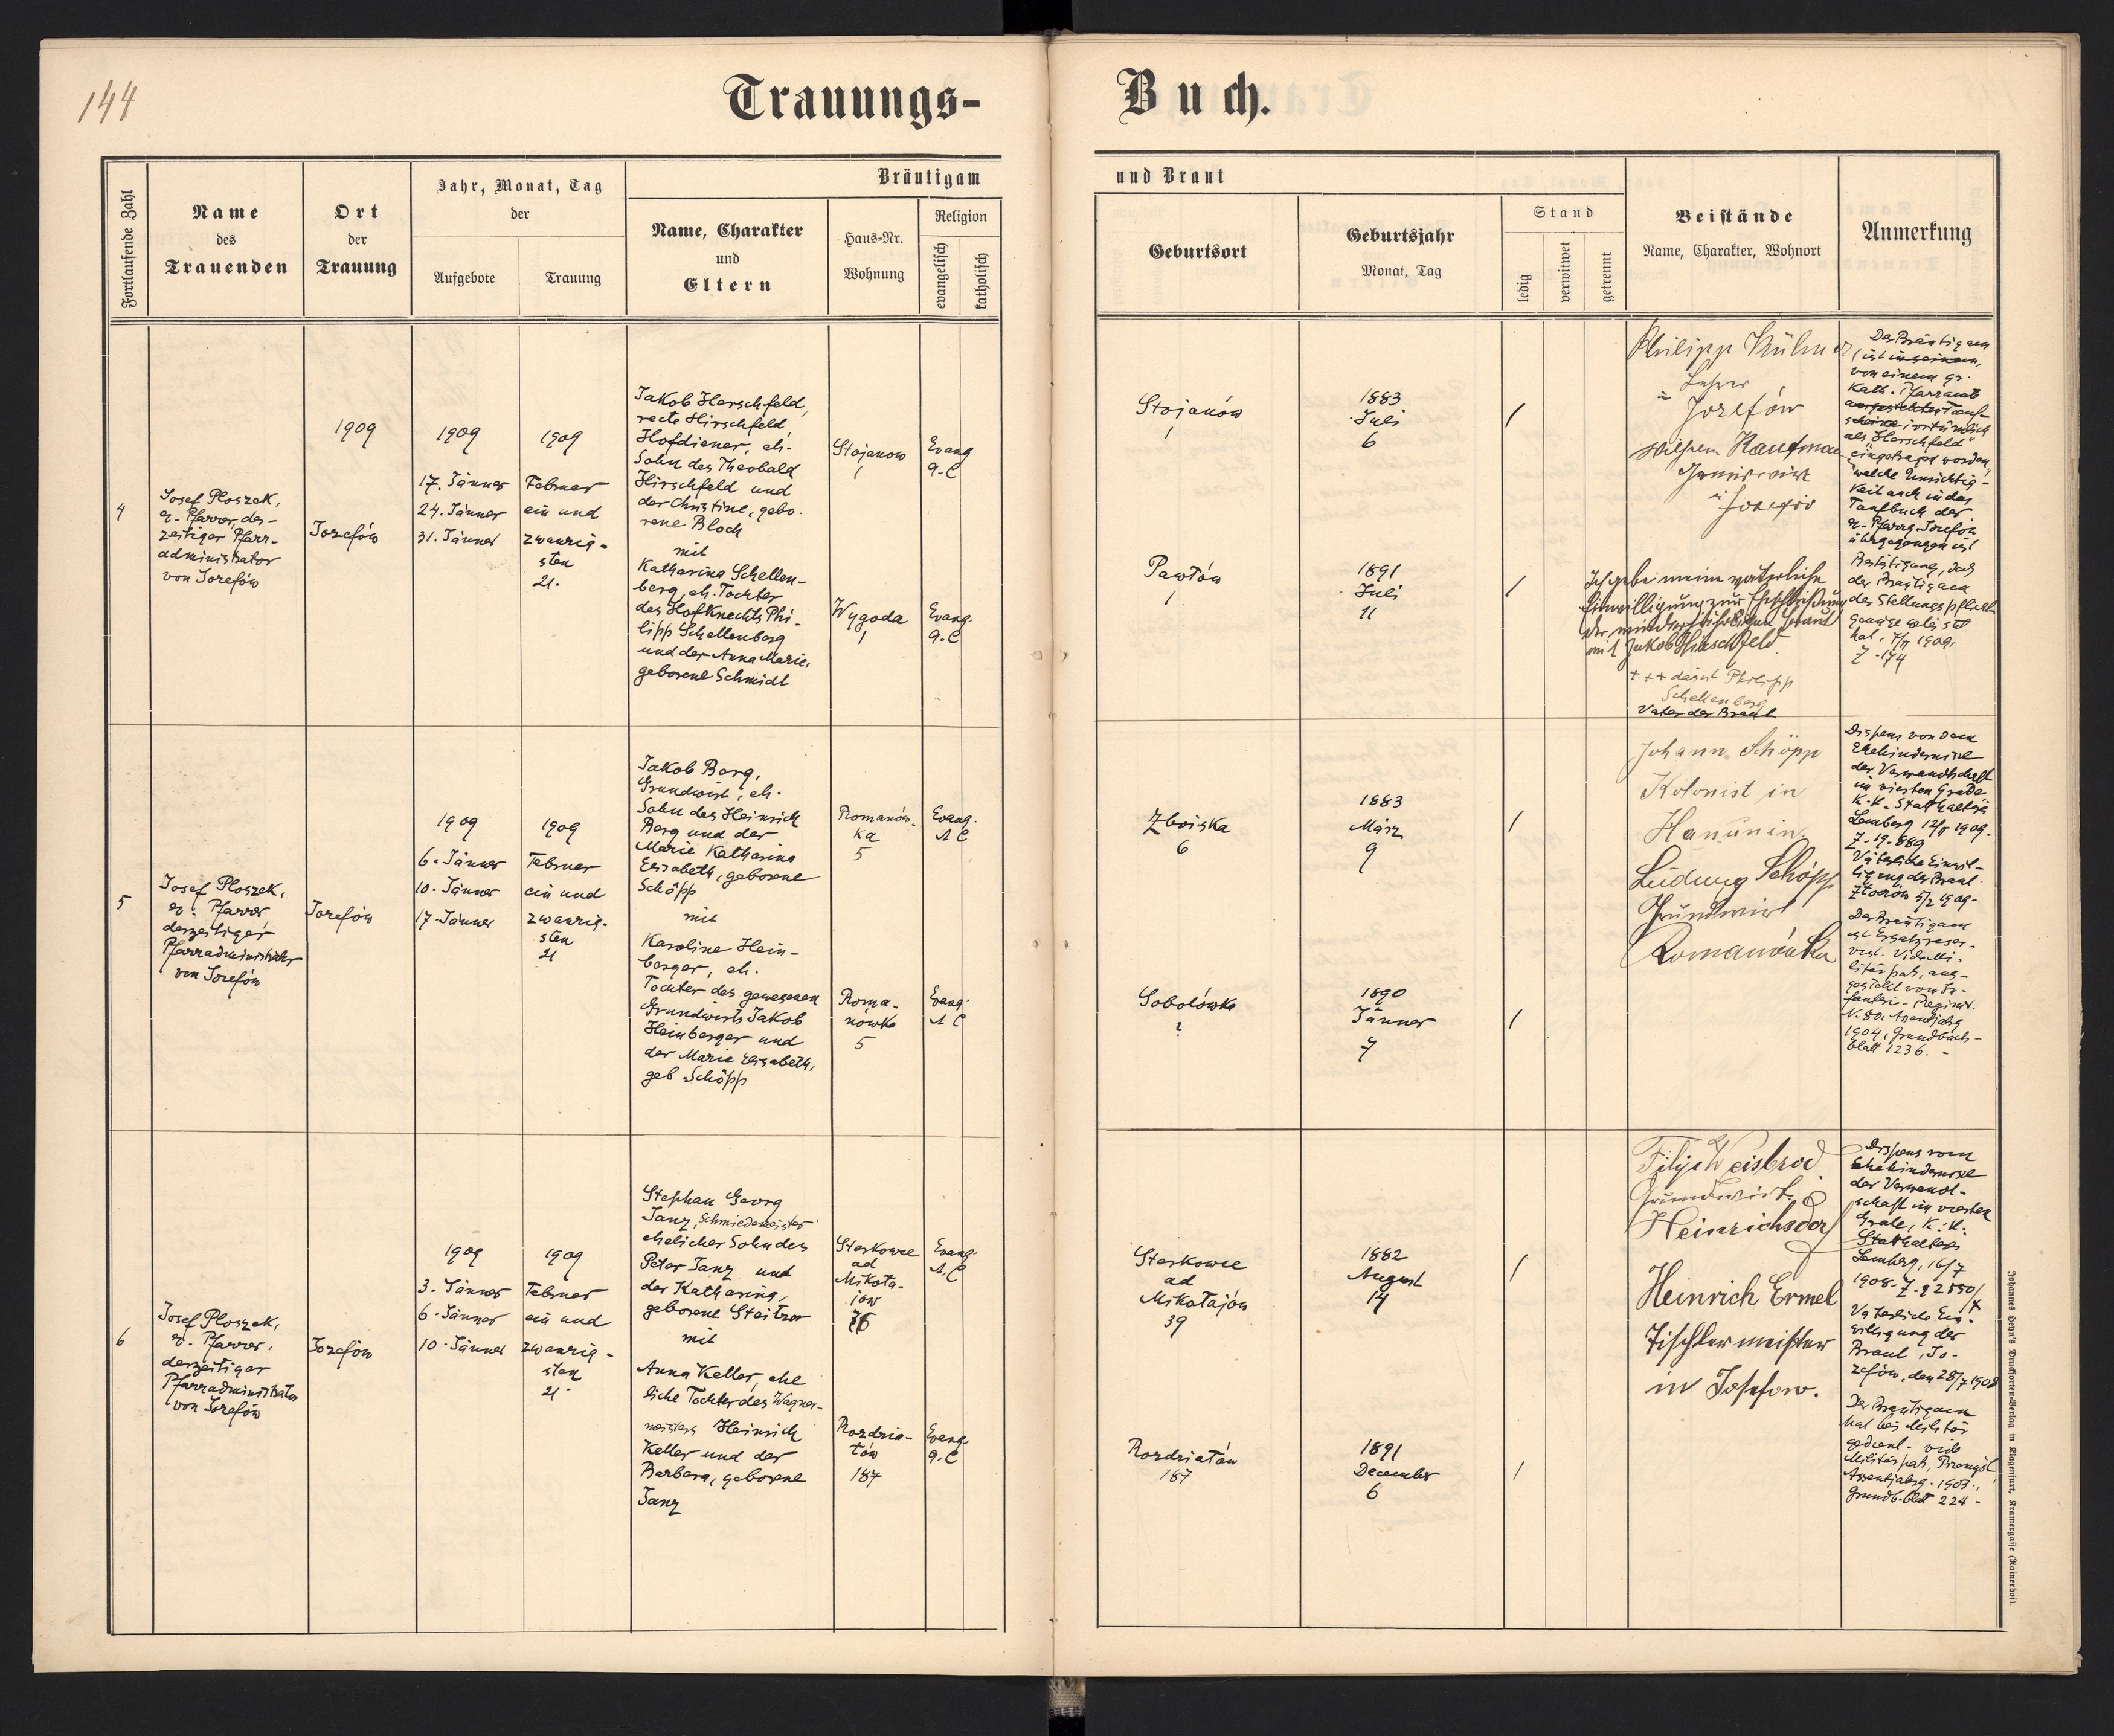 144
Trauungs-
Buch.
Fortlaufende Zahl
Name
des
Trauenden
Ort
der
Trauung
Jahr, Monat, Tag
der
Aufgebote
Trauung
Bräutigam
Name, Charakter
und
Eltern
Haus-Nr.
Wohnung
Religion
evangelisch
katholisch
und Braut
Geburtsort
Geburtsjahr
Monat, Tag
Stand
ledig
verwitwet
getrennt
Beistände
Name, Charakter, Wohnort
Anmerkung
4
Josef Ploszek,
ev. Pfarrer, der-
zeitiger Pfarr-
administrator
von Josefów
1909
Josefów
1909
17. Jänner
24. Jänner
31. Jänner
1909
Februar
ein und
zwanzig-
sten
21.
Jakob Herschfeld,
recte Hirschfeld,
Hofdiener, eh.
Sohn des Theobald
Hirschfeld und
der Christine, gebo-
rene Bloch
mit
Katharina Schellen-
berg, eh. Tochter
des Hofknechts Phi-
lipp Schellenberg
und der Anna Marie,
geborene Schmidt
Stojanow
1
Wygoda
1
Evang.
A.C
Evang.
A.C
Stojanów
1
Pawłów
1
1883
Juli
6
1891
Juli
11
/
/
Philipp
Lehrer
Jozefów
Wilhelm Kaufman
Ich gebe meine väterliche
Einwilligung zur Eheschließung
der minderjährigen Braut
mit Jakob Hirschfeld.
+ + + Philipp
Schellenberg
Vater der Braut
Der Bräutigam
ist in seinem,
von einem gr.
Kath. Pfarramte
ausgestellten Tauf-
scheine irrtümlich
als "Herschfeld"
eingetragen worden,
welche Unrichtig-
keit auch in das
Taufbuch der
ev. Pfarrg. Josefów
übergegangen ist
Bestätigung, daß
der Bräutigam
der Stellungspflicht
genüge geleistet
hat, 1909,
Z. 174
5
Josef Ploszek,
ev. Pfarrer,
derzeitiger
Pfarradministrator
von Josefów
Josefów
1909
6. Jänner
10. Jänner
17. Jänner
1909
Februar
ein und
zwanzig-
sten
21
Jakob Berg,
Grundwirt, eh.
Sohn des Heinrich
Berg und der
Marie Katharina
Elisabeth, geborene
Schöpp
mit
Karoline Hein-
berger, eh.
Tochter des gewesenen
Grundwirts Jakob
Heinberger und
der Marie Elisabeth,
geb. Schöpp
Romanów-
ka
5
Roma-
nówka
5
Evang.
A C
Evang.
A C
Zboiska
6
Sobolówka
?
1883
März
9
1890
Jänner
7
/
/
Johann Schöpp
Kolonist in
Hanunin.
Ludwig Schöpp
Grundwirt
Romanówka
Dispens von dem
Ehehindernisse
der Verwandtschaft
im vierten Grade
K.K. Statthalterei
Lemberg 1909.
Väterliche Einwil-
ligung der Braut.
Złoczów 5/2 1909.
Der Bräutigam
ist Ersatzreser-
vist. Vide Mi-
litärpaß, aus-
gestellt vom In-
fanterie-Regimt.
N. 80, Assentjahrg
1904, Grundbuch-
blatt 1236. -
6
Josef Ploszek,
ev. Pfarrer,
derzeitiger
Pfarradministrator
von Josefów
Josefów
1909
3. Jänner
6. Jänner
10. Jänner
1909
Februar
ein und
zwanzig-
sten
21.
Stephan Georg
Janz, Schmiedemeister
ehelicher Sohn des
Peter Janz und
der Katharina,
geborene
mit
Anna Keller, ehe
liche Tochter des Wagner-
meisters Heinrich
Keller und der
Barbara, geborene
Janz
ad
Mikoła-
jów
Rozdzia-
tów
187
Evang.
A.C
Evang.
A.C
ad
Mikołajów
39
Rozdziatów
187
1882
August
14
1891
December
6
/
/
Filip Weisbrod
Grundwirt
Heinrichsdorf
Heinrich Ermel
Tischlermeister
in Josefow.
Dispens vom
Ehehindernisse
der Verwandt-
schaft im vierten
Grade, K.K.
Statthalterei
Lemberg, 16/7
1908.
Väterliche Ein-
willigung der
Braut, Jo-
zefów, den 28/7 1908
Der Bräutigam
hat bei Militär
gedient. vide
Militärpaß, Przemysl,
Assentjahrg. 1903.,
Grundb.blatt 224 -
Johannes Heyn's Drucksorten-Verlag in Klagenfurt, Kramergasse (Rainerhof).